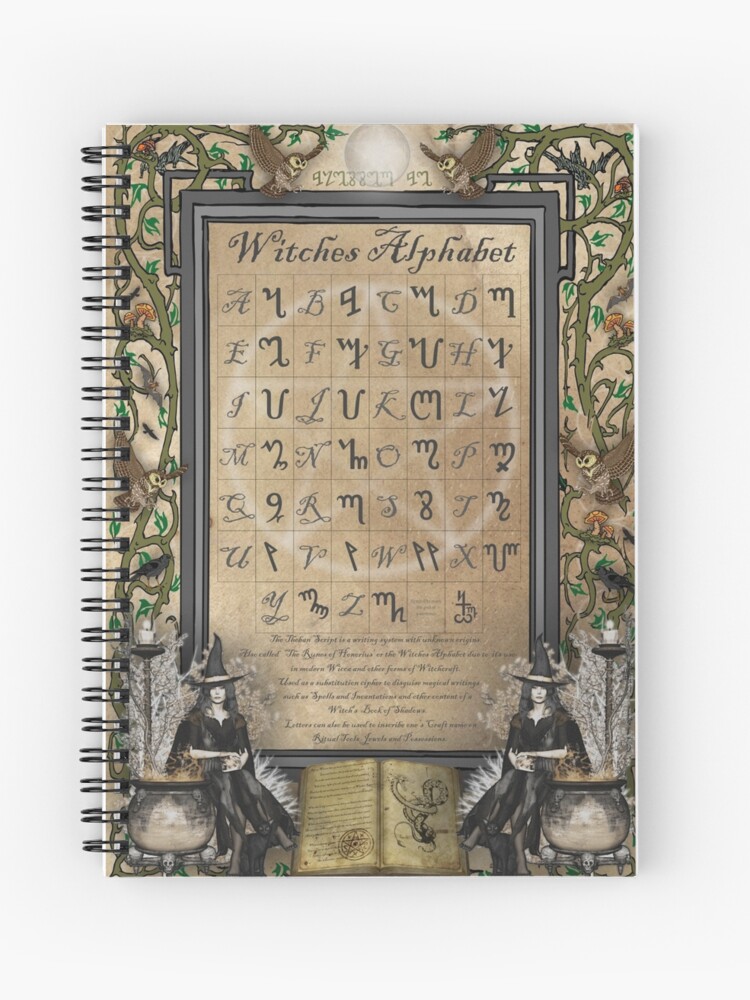 Witches Alphabet
A B C D
E F G H
I J K L
M N O P
Q R S T
U V W X
Y Z
The Theban Script is a writing system with unknown origins.
Also called 'The Runes of Honorius' or the Witches Alphabet due to its use
in modern Wicca and other forms of Witchcraft.
Used as a substitution cipher to disguise magical writings
such as Spells and Incantations and other content of a
Witch's Book of Shadows.
Letters can also be used to inscribe one's Craft name on
Ritual Tools, Jewels and Possessions.